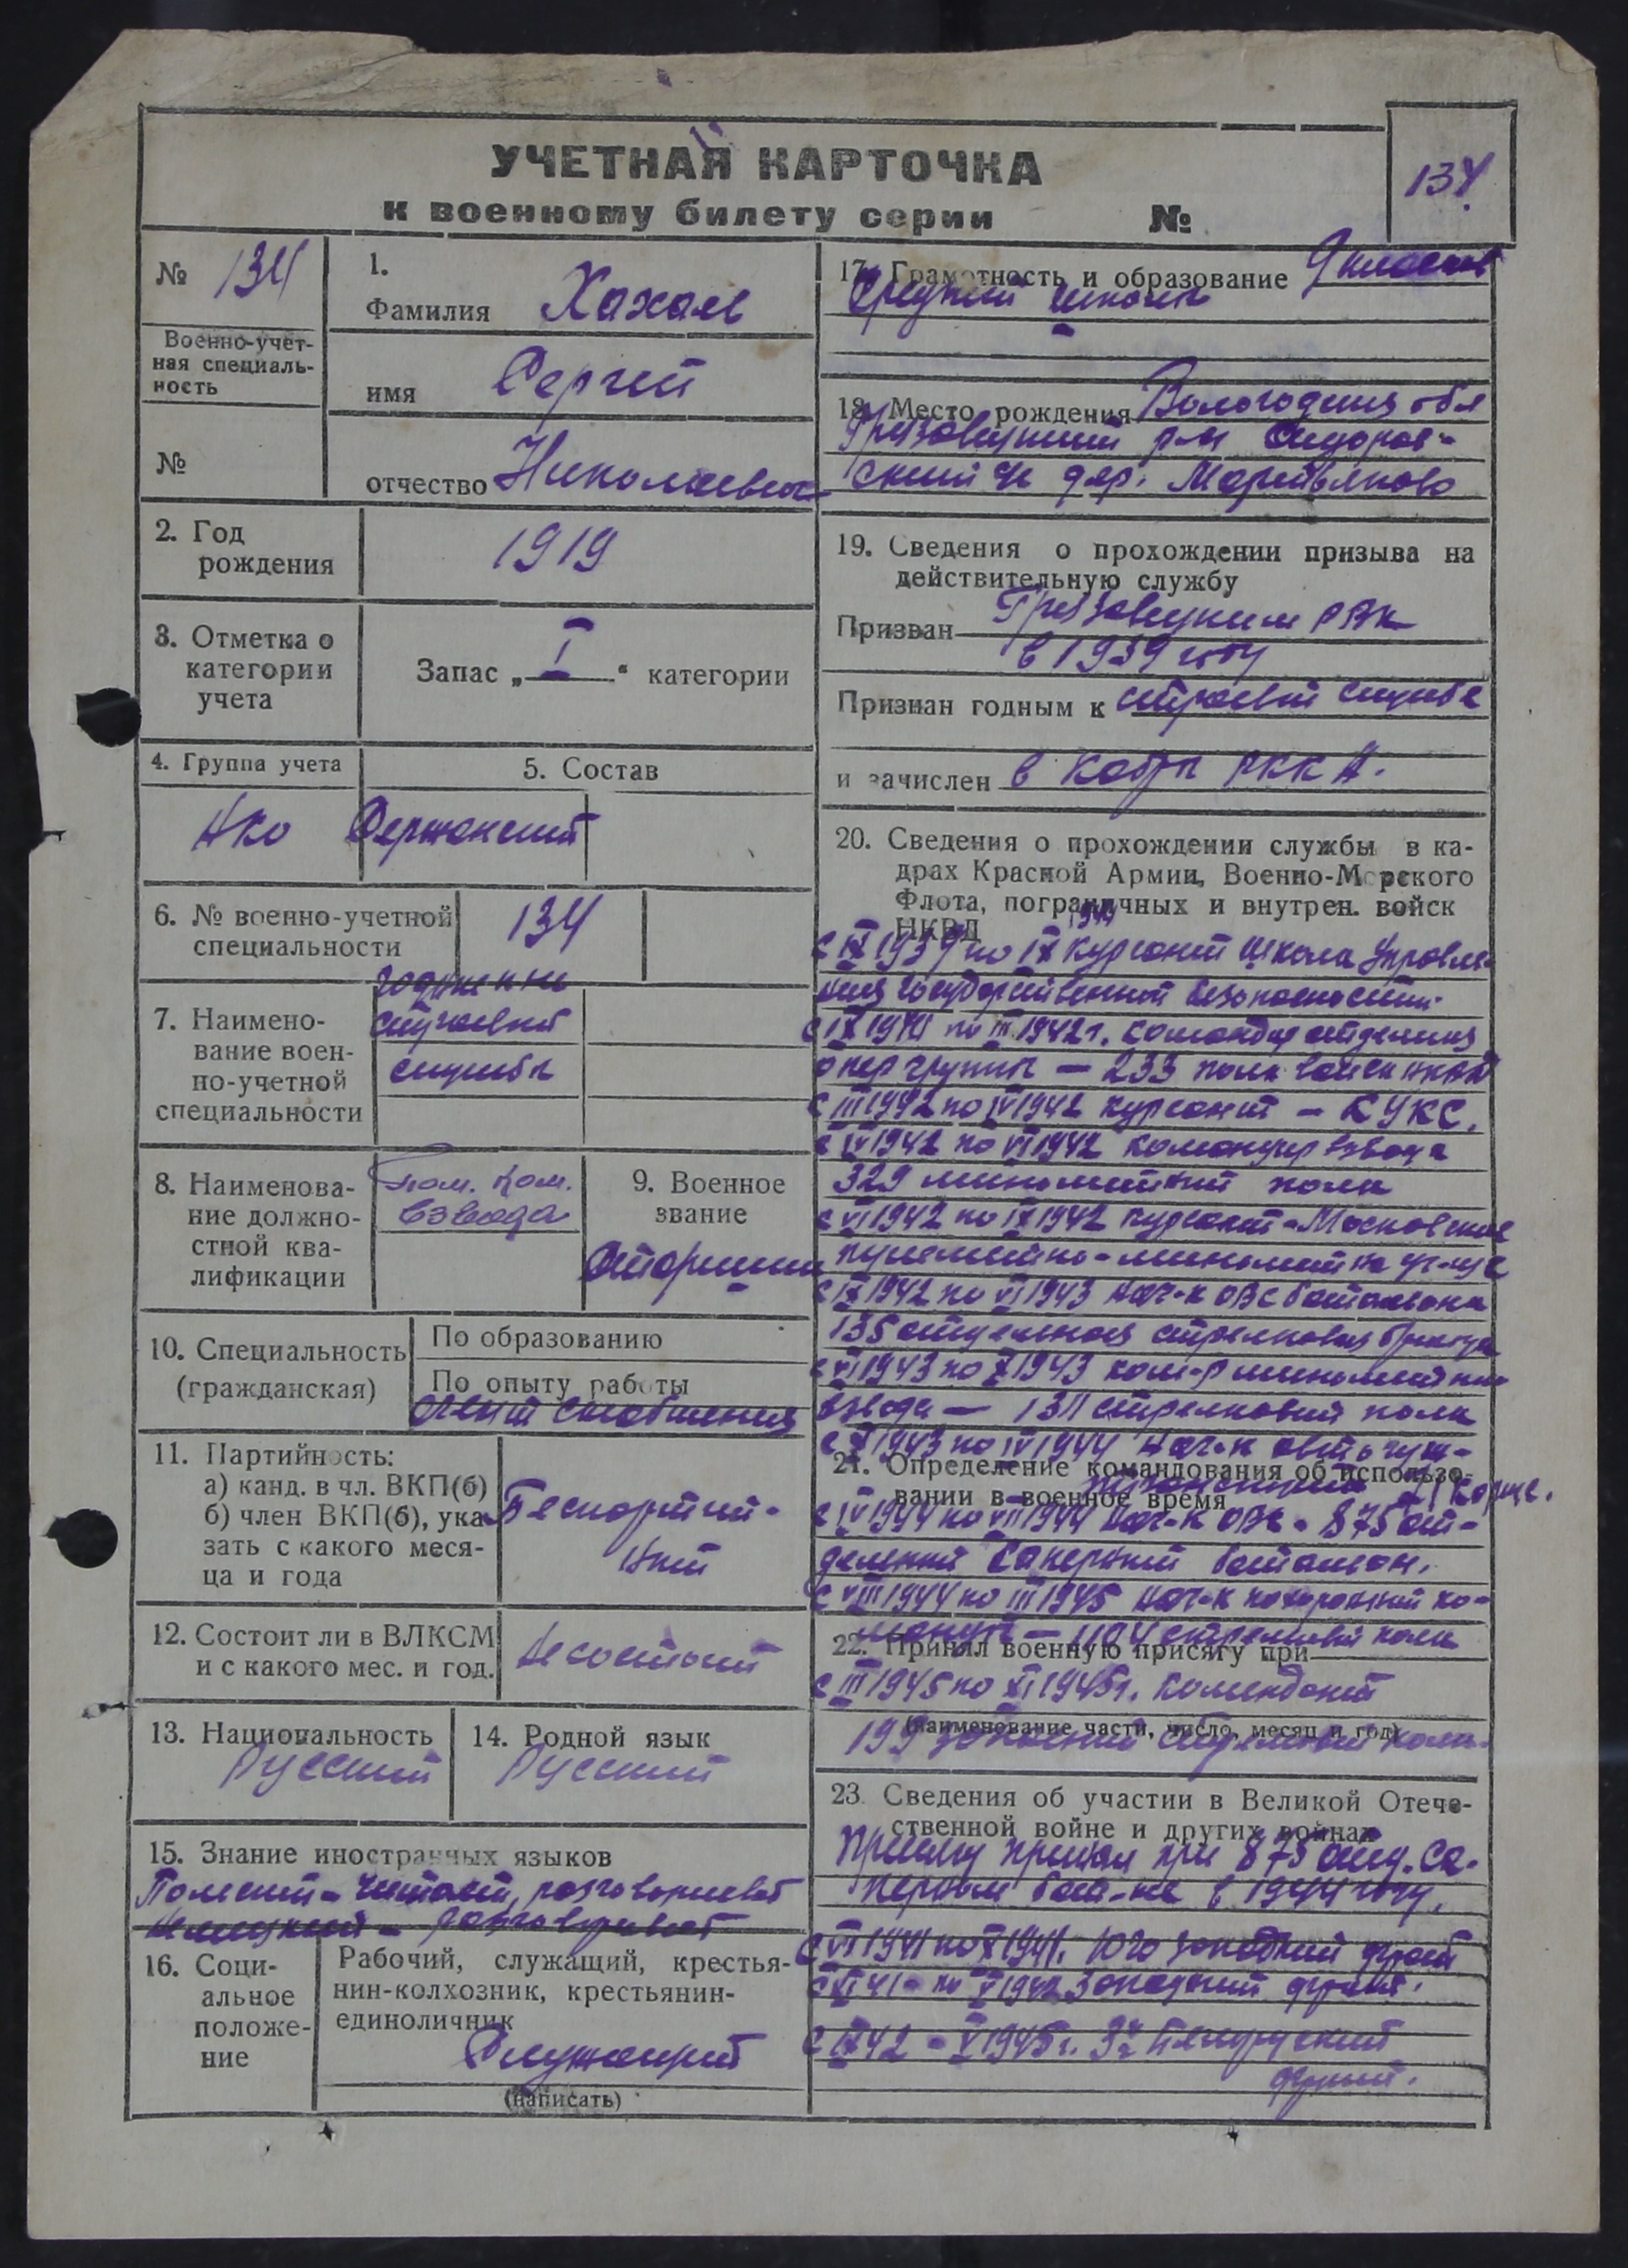 УЧЕТНАЯ КАРТОЧКА
к военному билету серии №
134
№ 134
Военно-учет-
ная специаль-
ность
№
1.
Фамилия Хахалев
имя Сергей
отчество Николаевич
2. Год
рождения
1919
3. Отметка о
категории
учета
Запас „ I “ категории
4. Группа учета
5. Состав
АКО Сержанский
6. № военно-учетной
специальности
134
7. Наимено-
вание воен-
но-учетной
специальности
годжен
строевой
службы
8. Наименова-
ние должно-
стной ква-
лификации
Пом. Ком.
Взвода
9. Военное
звание
Старшина
10. Специальность
(гражданская)
По образованию
По опыту работы
Агент снабжения
11. Партийность:
а) канд. в чл. ВКП(б)
б) член ВКП(б), ука
зать с какого меся-
ца и года
Беспартий-
ный
12. Состоит ли в ВЛКСМ
и с какого мес. и год.
Не состоит
13. Национальность
Русский
14. Родной язык
Русский
15. Знание иностранных языков
Польский - читает, разговаривает
немецкий - разговаривает
16. Соци-
альное
положе-
ние
Рабочий, служащий, крестья-
нин-колхозник, крестьянин-
единоличник
Служащий
(написать)
17. Грамотность и образование 9 классов
Средней школы
18. Место рождения Вологодская обл
Грязовецкий р-н Сидоров-
ский с/с дер.
19. Сведения о прохождении призыва на
действительную службу
Призван Грязовецким РВК
в 1939 году
Признан годным к строевой службе
и зачислен в кадры РККА.
20. Сведения о прохождении службы в ка-
драх Красной Армии, Военно-Морского
Флота, пограничных и внутрен. войск
НКВД
с IX 1939 по IX 1941 курсант Школа Управле-
ния государственной безопасности.
с IX 1941 по III 1942 г. командир отделения
опер группы — 233 полк войск НКВД
с III 1942 по IV 1942 курсант — КУКС.
с IV 1942 по VI 1942 командир взвода
329 минометный полк
с VI 1942 по IX 1942 курсант - Московское
пулеметно-минометное уч-ще
с IX 1942 по VI 1943 нач-к ОВС батальона
135 отдельная стрелковая бригада
с VI 1943 по X 1943 ком-р минометного
взвода — 1311 стрелковый полк
с X 1943 по IV 1944 нач-к
21. Определение командования об использо-
вании в военное время
с IV 1944 по VII 1944 нач-к ОВС - 875 от-
дельный саперный батальон.
с VIII 1944 по III 1945 нач-к похоронной ко-
манды — стрелковый полк
22. Принял военную присягу при
с III 1945 по XI 1945 г. комендант
(наименование части, число, месяц и год)
199 запасный стрелковый полк.
23. Сведения об участии в Великой Отече-
ственной войне и других войнах
Присягу принял при 875 отд. са-
перном бат-не в 1944 году.
с VI 1941 по X 1941. Юго западный фронт
с XI 41 - по V 1942 Западный фронт.
с IX 42 - V 1945 г. 3й Белорусский
фронт.